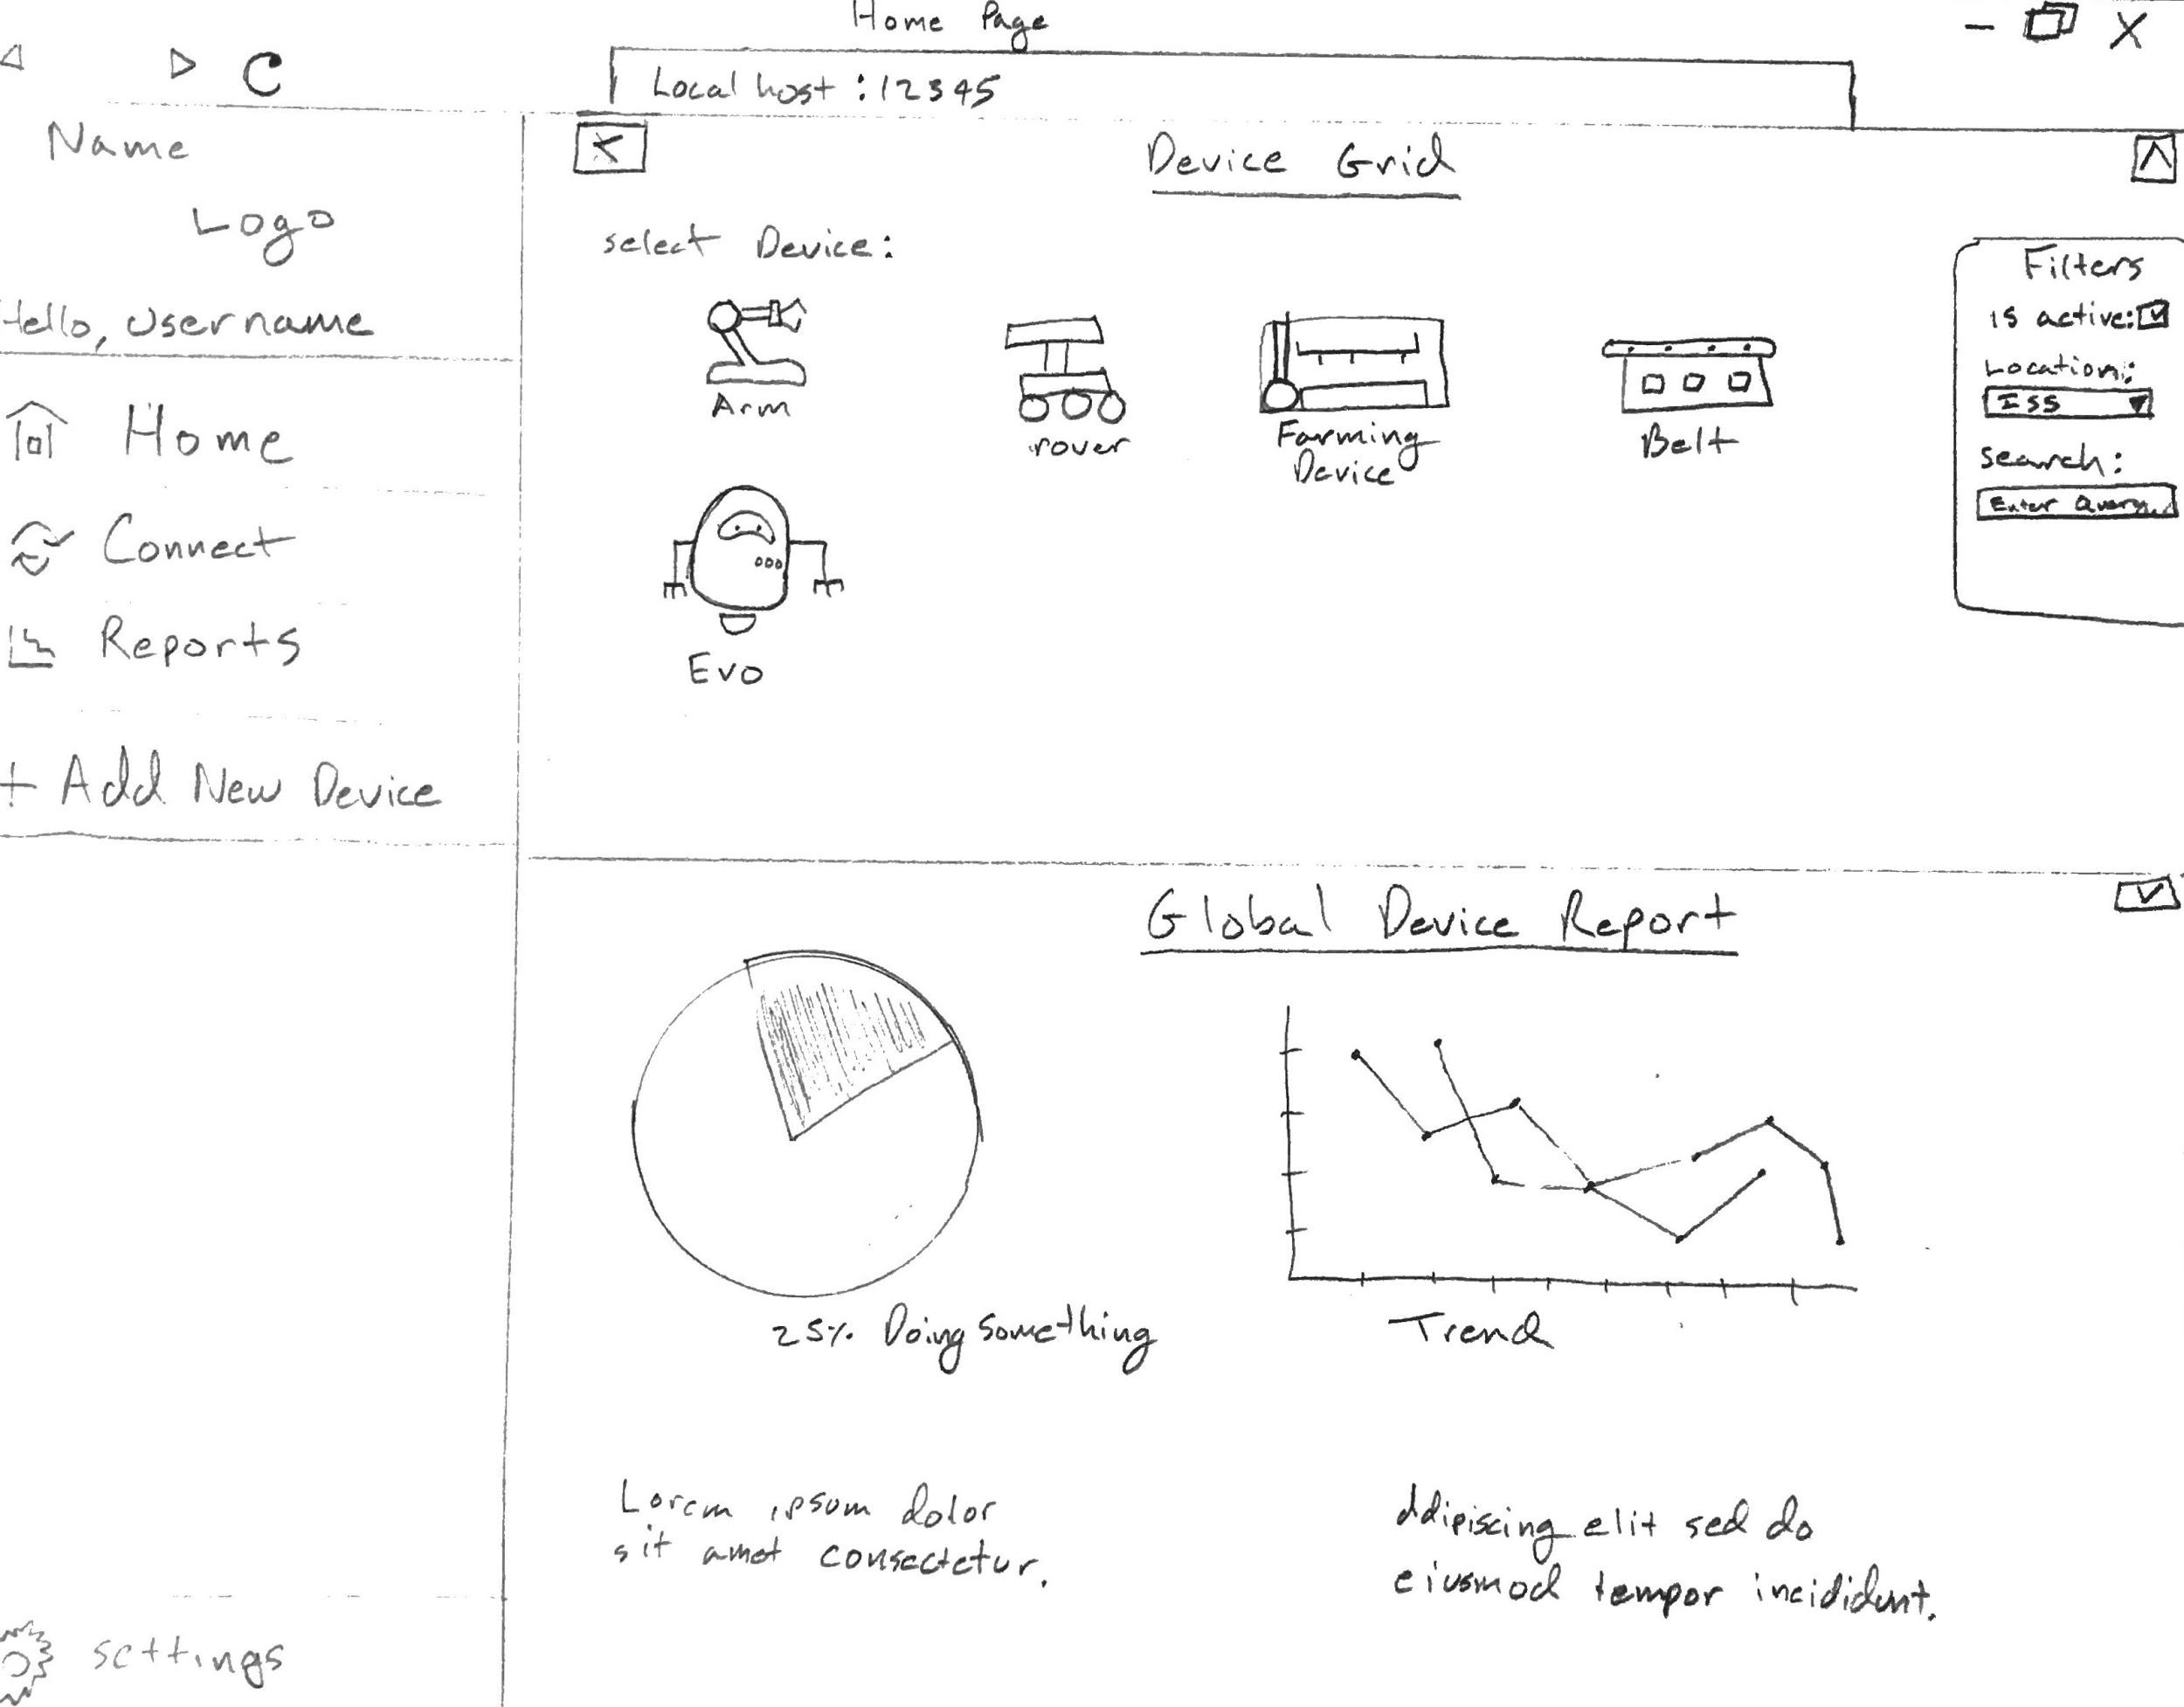 Home Page
Local host : 12345
Name
Logo
Hello, Username
Home
Connect
Reports
+ Add New Device
settings
Device Grid
select Device:
Arm
rover
Farming
Device
Belt
Evo
Filters
is active:
Location:
ISS
search:
Enter Query...
Global Device Report
25% Doing something
Trend
Lorem ipsum dolor
sit amet consectetur.
adipiscing elit sed do
eiusmod tempor incididunt.